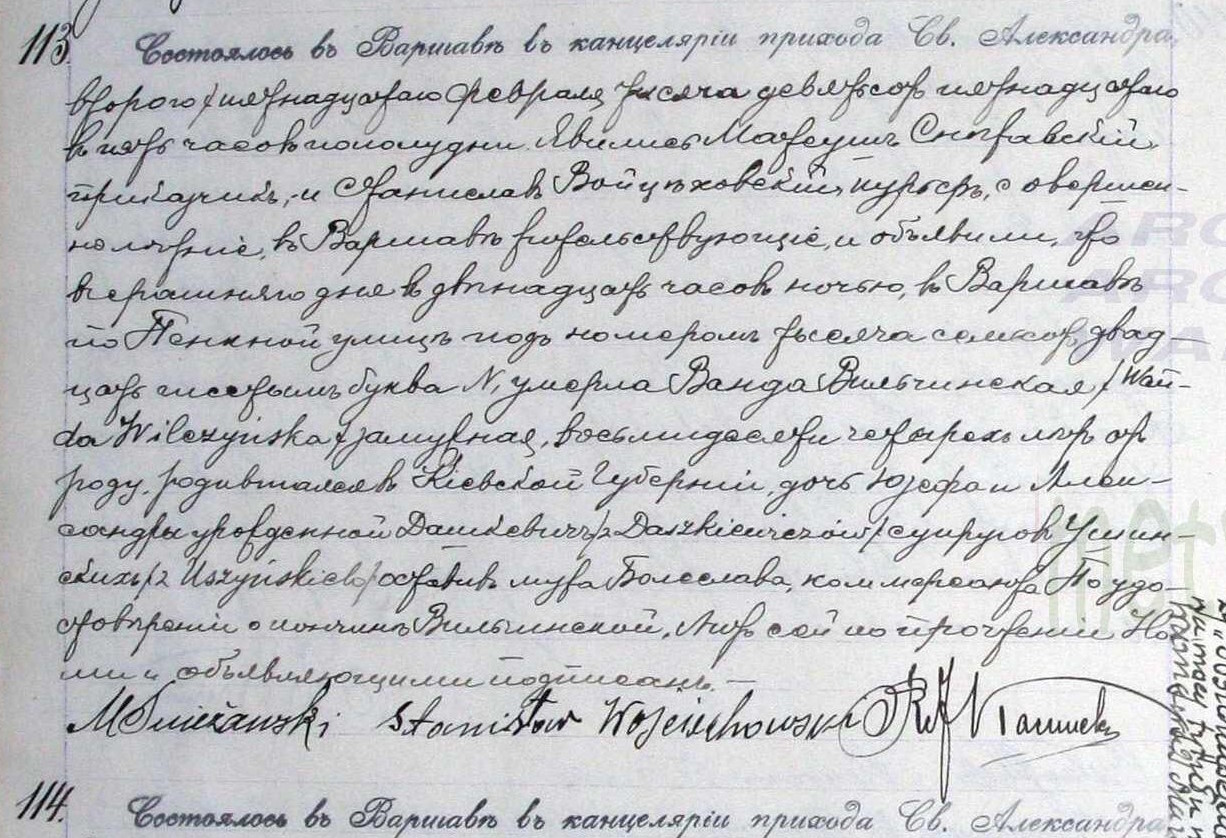 113.
Состоялось въ Варшавѣ въ канцеляріи прихода Св. Александра,
второго /пятнадцатаго Февраля тысяча девятьсотъ пятнадцатаго
въ пять часовъ пополудни. Явились Матеушъ Снѣжавскій,
прикащикъ, и Станиславъ Войцѣховскій, курьеръ, совершен-
нолѣтніе, въ Варшавѣ жительствующіе, и объявили, что
вчерашняго дня въ двѣнадцать часовъ ночью, въ Варшавѣ
по Пенкной улицѣ подъ номеромъ тысяча семьсотъ двад-
цать шестымъ буква N, умерла Ванда Вильчинская / Wan-
da Wilczyńska / замужная, восьмидесяти четырехъ лѣтъ отъ
роду, родившаяся въ Кіевской Губерніи, дочь Юзефа и Алек-
сандры урожденной Дашкевичъ /z Daszkiewiczów/ супруговъ Ушин-
скихъ /z Uszyńskich/ оставивъ мужа Болеслава, коммерсанта. По удо-
стовѣреніи о кончинѣ Вильчинской, Актъ сей по прочтеніи На-
ми и объявляющими подписанъ. —
MSnieżawski Stanisław Wojciechowski
114.
Состоялось въ Варшавѣ въ канцеляріи прихода Св. Александра,